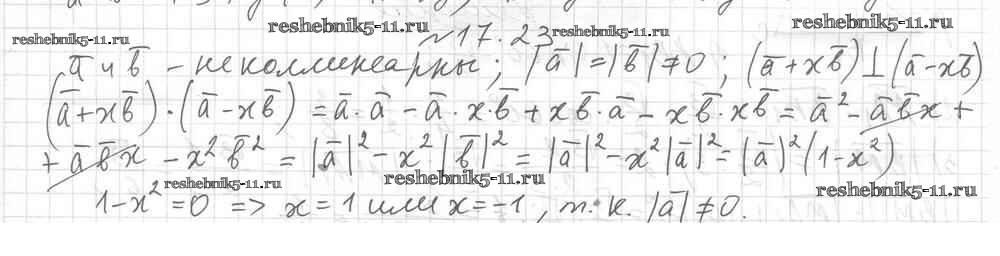 reshebnik5-11.ru reshebnik5-11.ru reshebnik5-11.ru
№17.23 reshebnik5-11.ru
a̅ и b̅ – не коллинеарны; |a̅|=|b̅|≠0; (a̅+xb̅)⊥(a̅-xb̅)
(a̅+xb̅)·(a̅-xb̅) = a̅·a̅ - a̅·x·b̅ + xb̅·a̅ - xb̅·xb̅ = a̅² - a̅b̅x +
+ a̅b̅x - x²b̅² = |a̅|² - x²·|b̅|² = |a̅|² - x²|a̅|² = (a̅)²(1-x²)
reshebnik5-11.ru reshebnik5-11.ru reshebnik5-11.ru
1-x²=0 => x=1 или x=-1, т.к. |a̅|≠0.